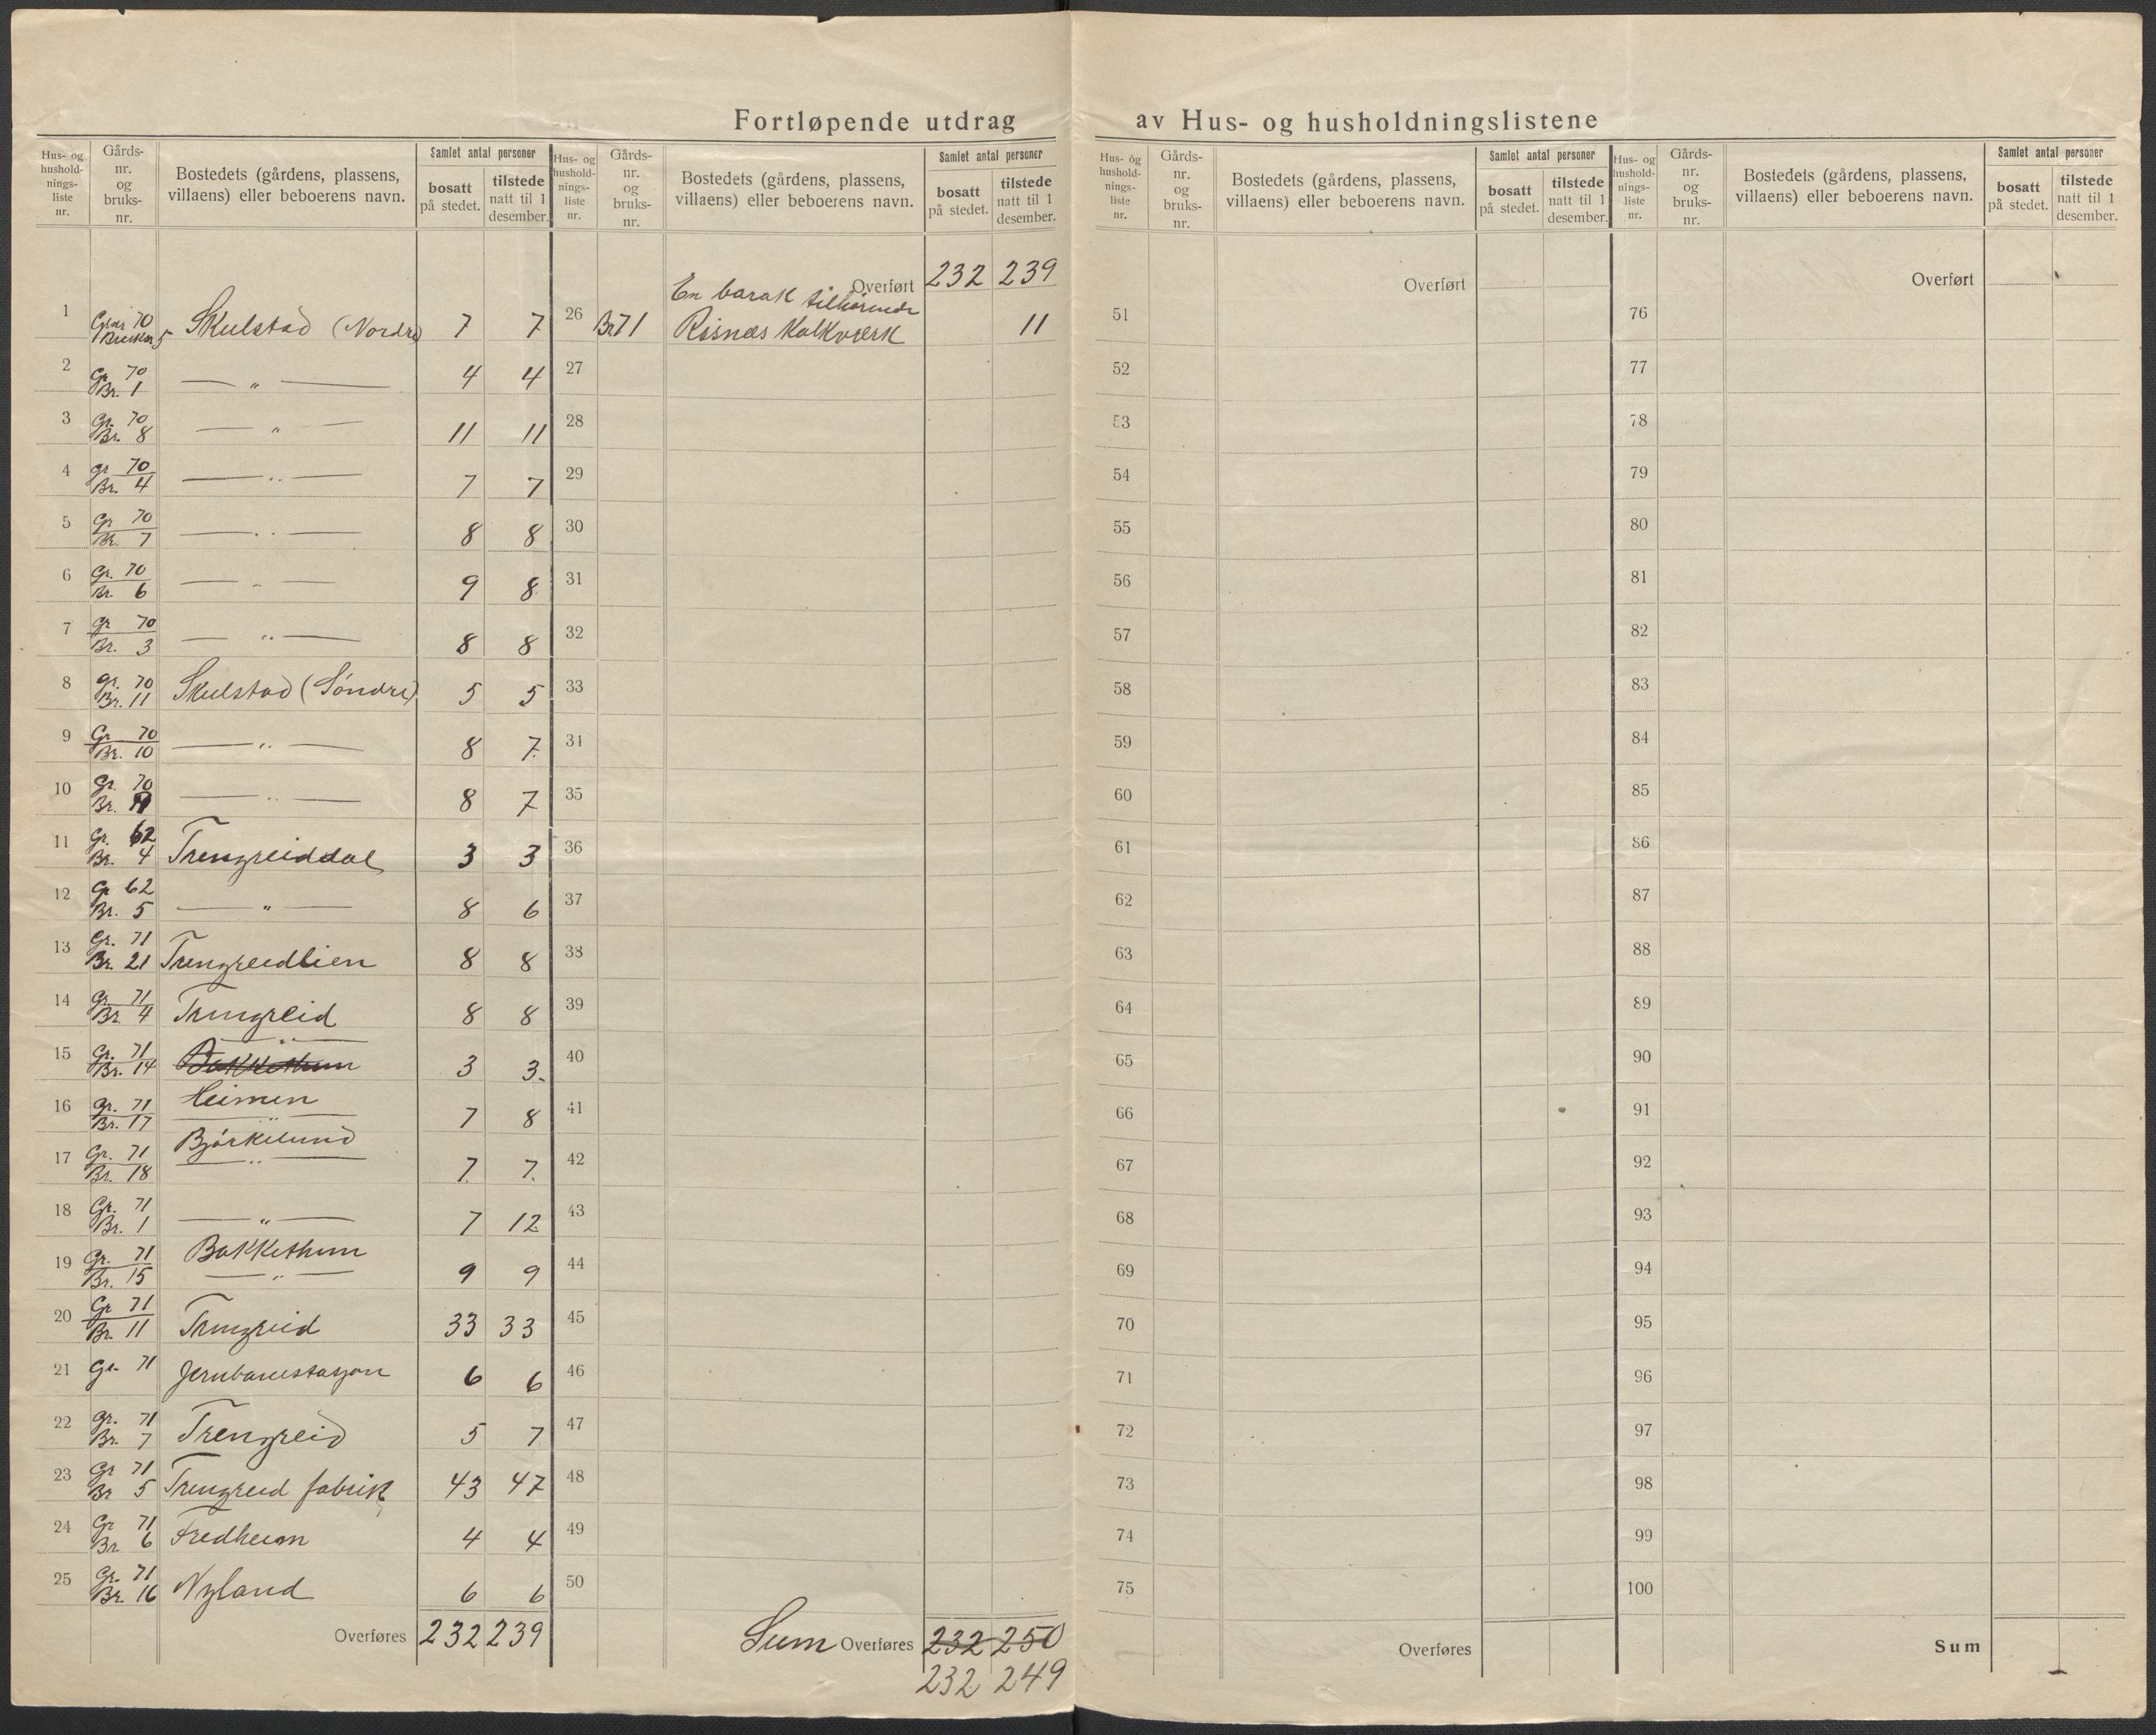 Fortløpende utdrag av Hus- og husholdningslistene
Hus- og hushold-nings-liste nr. | Gårds-nr. og bruks-nr. | Bostedets (gårdens, plassens, villaens) eller beboerens navn. | Samlet antal personer | bosatt på stedet. | tilstede natt til 1 desember.
1 Grnr 70 Bruksn 5 Skulstad (Nordre) 7 7
2 Gr 70 Br. 1 — " — 4 4
3 Gr. 70 Br. 8 — " — 11 11
4 gr 70 Br. 4 — " — 7 7
5 Gr 70 Br. 7 — " — 8 8
6 Gr. 70 Br. 6 — " — 9 8
7 gr 70 Br. 3 — " — 8 8
8 gr. 70 Br. 11 Skulstad (Søndre) 5 5
9 Gr 70 Br. 10 — " — 8 7
10 Gr. 70 Br. — " — 8 7
11 Gr. 62 Br. 4 Trengreiddal 3 3
12 Gr 62 Br. 5 — " — 8 6
13 Gr. 71 Br. 21 Trengreidlien 8 8
14 Gr 71 Br. 4 Trengreid 8 8
15 Gr. 71 Br. 14 — " — Bakkethun 3 3.
16 gr. 71 Br. 17 Heimen — " — 7 8
17 Gr. 71 Br. 18 Bjørkelund — " — 7. 7.
18 Gr. 71 Br. 1 — " — 7 12
19 Gr. 71 Br. 15 Bakkethun — " — 9 9
20 Gr 71 Br. 11 Trengreid 33 33
21 Gr. 71 Jernbanestasjon 6 6
22 gr. 71 Br. 7 Trengreid 5 7
23 Gr 71 Br 5 Trengreid fabrik 43 47
24 Gr 71 Br 6 Fredheim 4 4
25 Gr. 71 Br. 16 Nyland 6 6
Overføres 232 239
Hus- og hushold-nings-liste nr. | Gårds-nr. og bruks-nr. | Bostedets (gårdens, plassens, villaens) eller beboerens navn. | Samlet antal personer | bosatt på stedet. | tilstede natt til 1 desember.
Overført 232 239
26 Br 71 En barak tilhørende Risnæs Kalkværk 11
27
28
29
30
31
32
33
31
35
36
37
38
39
40
41
42
43
44
45
46
47
48
49
50
Sum Overføres 232 250
232 249
Hus- og hushold-nings-liste nr. | Gårds-nr. og bruks-nr. | Bostedets (gårdens, plassens, villaens) eller beboerens navn. | Samlet antal personer | bosatt på stedet. | tilstede natt til 1 desember.
Overført
51
52
53
54
55
56
57
58
59
60
61
62
63
64
65
66
67
68
69
70
71
72
73
74
75
Overføres
Hus- og hushold-nings-liste nr. | Gårds-nr. og bruks-nr. | Bostedets (gårdens, plassens, villaens) eller beboerens navn. | Samlet antal personer | bosatt på stedet. | tilstede natt til 1 desember.
Overført
76
77
78
79
80
81
82
83
84
85
86
87
88
89
90
91
92
93
94
95
96
97
98
99
100
Sum